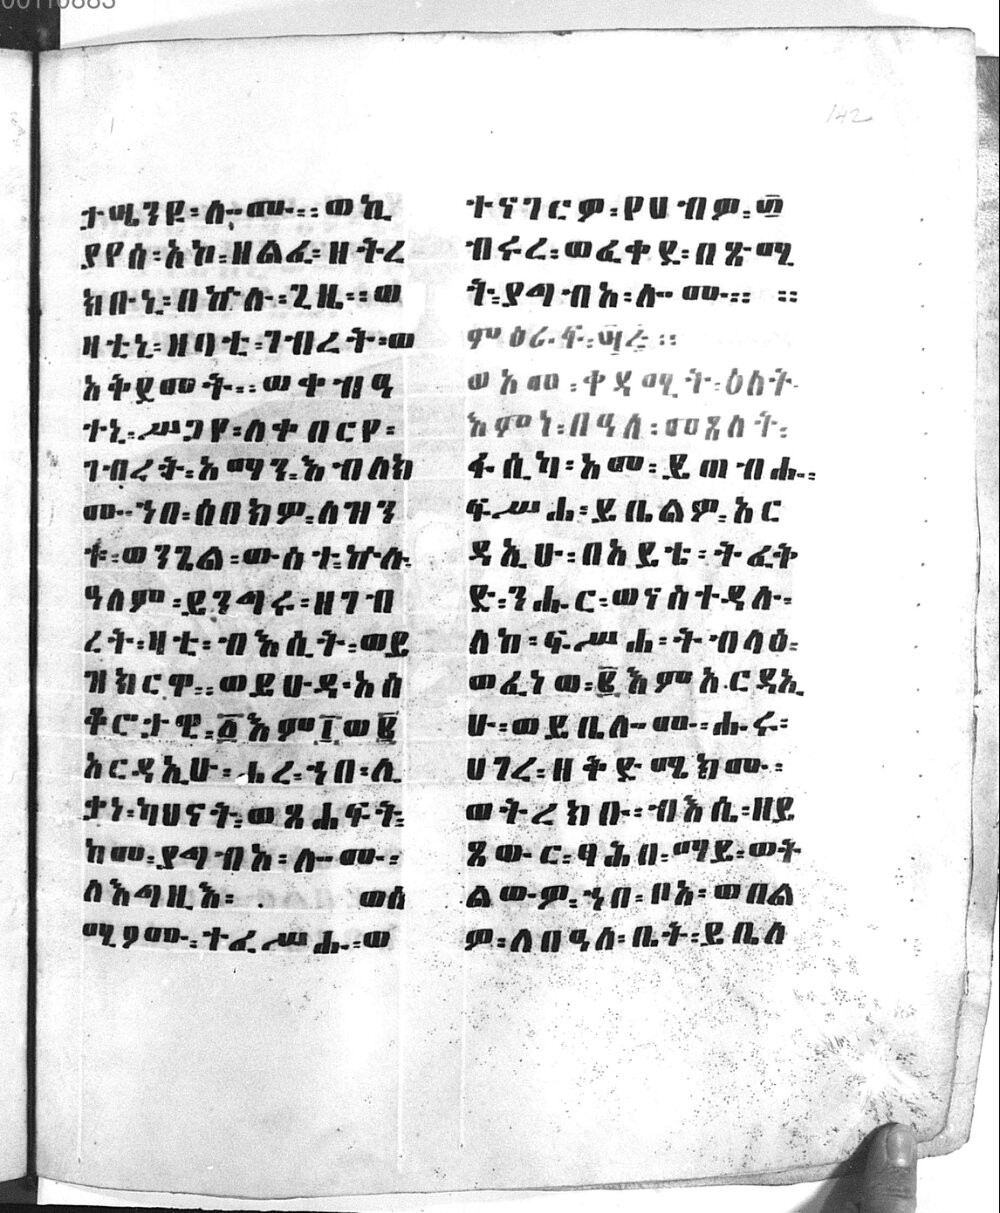 ታሜንያ፡ለሙ።ወኪ
ያየሰ፡አኮ፡ዘልፈ፡ዘትረ
ክቡኒ፡በኵሉ፡ጊዜ።ወ
ዛቲኒ፡ዘባቲ፡ገብረት፡ወ
አቅደመት።ወቀብዓ
ተኒ፡ሥጋየ፡ለቀበርየ፡
ገብረት፡አማን፡እብለክ
ሙ፡ኀበ፡ሰበክዎ፡ለዝን
ቱ፡ወንጌል፡ውስተ፡ኵሉ፡
ዓለም፡ይንግሩ፡ዘገብ
ረት፡ዛቲ፡ብእሲት፡ወይ
ዝክርዋ።ወይሁዳ፡አስ
ቆርታዊ፡፩እም፲ወ፪
አርዳኢሁ፡ሖረ፡ኀበ፡ሊ
ቃነ፡ካህናት፡ወጸሐፍት፡
ከመ፡ያግብአ፡ሎሙ፡
ለእግዚእ፡ ወሰ
ሚዖሙ፡ተፈሥሑ፡ወ
ተናገርዎ፡የሀብዎ፡፴
ብሩረ፡ወፈቀደ፡በጽሚ
ት፡ያግብአ፡ሎሙ። ።
ምዕራፍ፡፵ረ፡።
ወአመ፡ቀዳሚት፡ዕለት
እምነ፡በዓለ፡መጸለት፡
ፋሲካ፡አመ፡ይጠብሑ፡
ፍሥሐ፡ይቤልዎ፡አር
ዳኢሁ፡በአይቴ፡ትፈቅ
ድ፡ንሑር፡ወናስተዳሉ፡
ለከ፡ፍሥሐ፡ትብላዕ፡
ወፈነወ፡፪እምአርዳኢ
ሁ፡ወይቤሎሙ፡ሑሩ፡
ሀገረ፡ዘቅድሜክሙ፡
ወትረክቡ፡ብእሴ፡ዘይ
ጸውር፡ዓሕበ፡ማይ፡ወት
ልውዎ፡ኀበ፡ቦአ፡ወበል
ዎ፡ለበዓለ፡ቤት፡ይቤለ
142